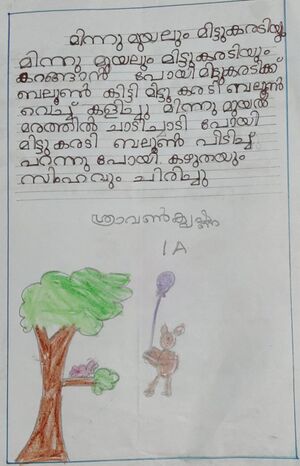 മിന്നു മുയലും മിട്ടുകരടിയും
മിന്നു മുയലും മിട്ടുകരടിയും
കറങ്ങാൻ പോയി മിട്ടുകരടിക്ക്
ബലൂൺ കിട്ടി മിട്ടു കരടി ബലൂൺ
വെച്ച് കളിച്ചു മിന്നു മുയൽ
മരത്തിൽ ചാടിചാടി പോയി
മിട്ടു കരടി ബലൂൺ പിടിച്ച്
പറന്നു പോയി. കഴുതയും
സിംഹവും ചിരിച്ചു
ശ്രാവൺകൃഷ്ണ
1A